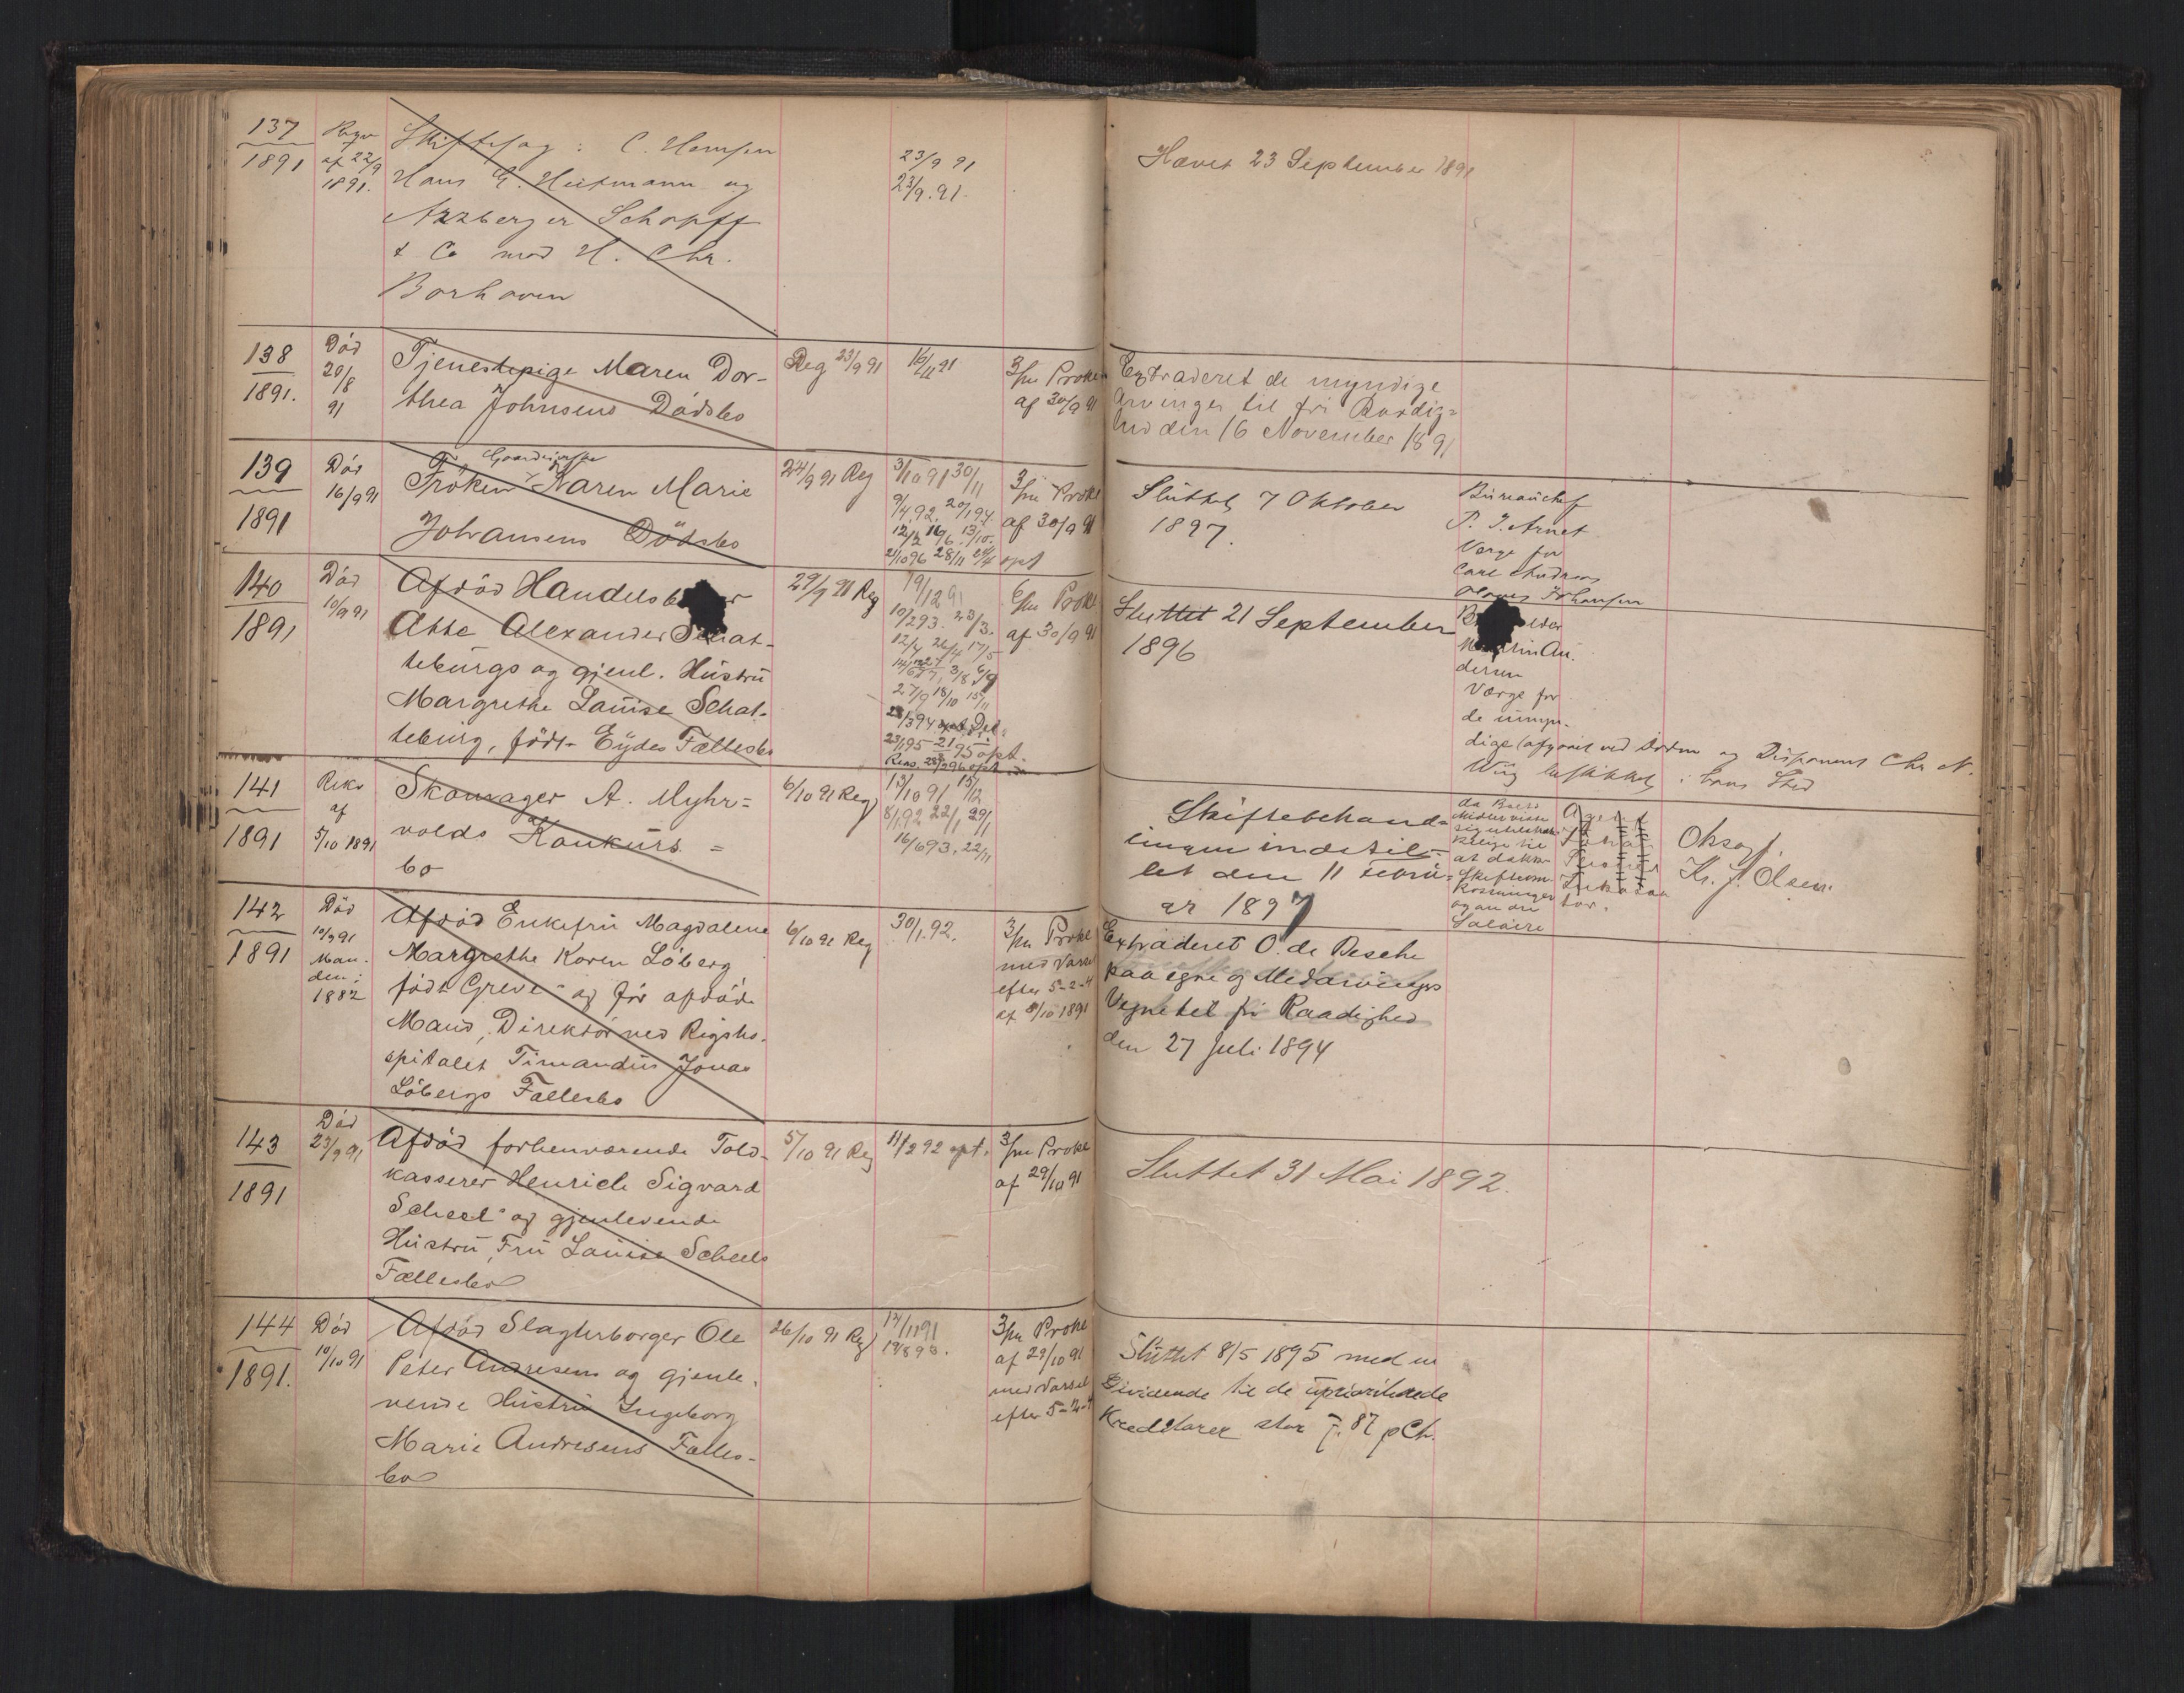 137
1891
af 22/9
1891.
Skiftesag : C. Hansen
Hans
Schopff
& Co mod H. Chr.
Borhaven
23/9 91
23/9.91.
Hævet 23 September 1891
138
1891.
Död
20/8
91
Tjenestepige Maren Dor-
thea Johnsens Dödsbo
Reg 23/9 91
16/11 91
3/m Prokl
af 30/9 91
Extraderet de myndige
Arvinger til fri Raadig=
hed den 16 November 1891
139
1891
Död
16/9 91
Fröken Karen Marie
Johansens Dödsbo
24/9 91 Reg
3/10 91 30/11
9/4 92. 20/1 94
21/10 96 28/11 opt
3/m Prokl
af 30/9 91
Sluttet 7 Oktober
1897.
Bureauchef
P. J. Arnet
Værge for
Carl Andreas
Johansen
140
1891
Död
10/9 91
Afdöd Handelsb
Atte Alexander Schat-
teburgs og gjenl. Hüstrü
Margrethe Laüise Schat-
tebürg, födt Eÿdes Fællesbo
29/9 91 Reg
19/12 91
10/2 93. 23/3.
12/4 26/4 17/5
27/9 18/10 15/11
23/1 95 opt.
6/m Prokl
af 30/9 91
Sluttet 21 September
1896
Værge for
de umyn-
dige (afgaaet ved Döden og Disponent Chr N.
Wiig beskikket i hans Sted
141
1891
Rekv
af
5/10 1891
Skomager A. Myhr=
volds Konkürs =
bo
6/10 91 Reg
13/10 91 15/12
8/1 92 22/1 29/1
16/6 93, 22/11
Skiftebehand=
lingen indstil=
let den 11 Febru=
ar 1897
da Boets
Midler
at dække
Skifteom-
kostninger
og andre
Salaire
Agent
Oksagf.
Kr. J. Olsen.
142
1891
Död
10/9 91
Man-
den i
1882
Afdöd Enkefrü Magdalene
Margrethe Karen Löberg
födt Greve og för afdöde
Mand, Direktör ved Rigsho-
spitalet Timandüs Jonas
Löbergs Fællesbo
6/10 91 Reg
30/1.92.
3/m Prokl
med Varsel
efter 5-2-4
af 8/10 1891
Extraderet O. de Besche
paa egne og Medarvingers
Vegne til fri Raadighed
den 27 Juli 1894
143
1891
Död
23/9 91
Afdöd forhenværende Told-
kasserer Henrich Sigvard
Scheel og gjenlevende
Hüstrü, Frü Laüise Scheels
Fællesbo
5/10 91 Reg
11/2 92 opt.
3/m Prokl
af 29/10 91
Sluttet 31 Mai 1892.
144
1891.
Död
10/10 91
Afdöd Slagterborger Ole
Peter Andresens og gjenle-
vende Hüstrü Ingeborg
Marie Andresens Fælles-
bo
26/10 91 Reg
3/m Prokl
af 29/10 91
med Varsel
efter 5-2-4
Sluttet 8/5 1895 med en
Dividende til de upriorterede
Kreditorer stor 7.87 pCt.